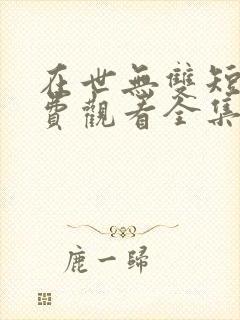 在世無雙短
費觀看全集
鹿一歸